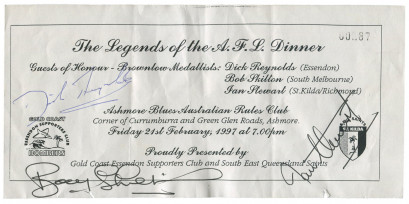 00087
The Legends of the A.F.L. Dinner
Guests of Honour - Brownlow Medallists: Dick Reynolds (Essendon)
Bob Skilton (South Melbourne)
Ian Stewart (St.Kilda/Richmond)
Ashmore Blues Australian Rules Club
Corner of Currumburra and Green Glen Roads, Ashmore.
Friday 21st February, 1997 at 7.00pm
GOLD COAST
ESSENDON SUPPORTERS CLUB
BOMBERS
ST. KILDA
Proudly Presented by
Gold Coast Essendon Supporters Club and South East Queensland Saints